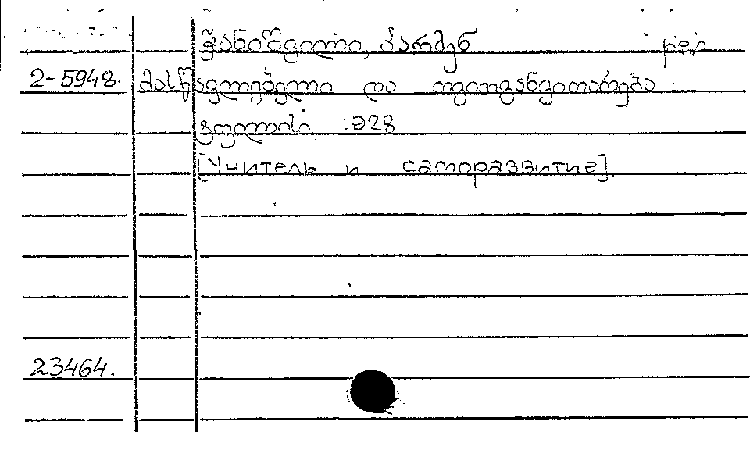 ჭანიშვილი, კარმენ рег
2-5948. მასწავლებელი და თვითგანვითარება
ტფილისი 928
[Учитель и саморазвитие]
23464.